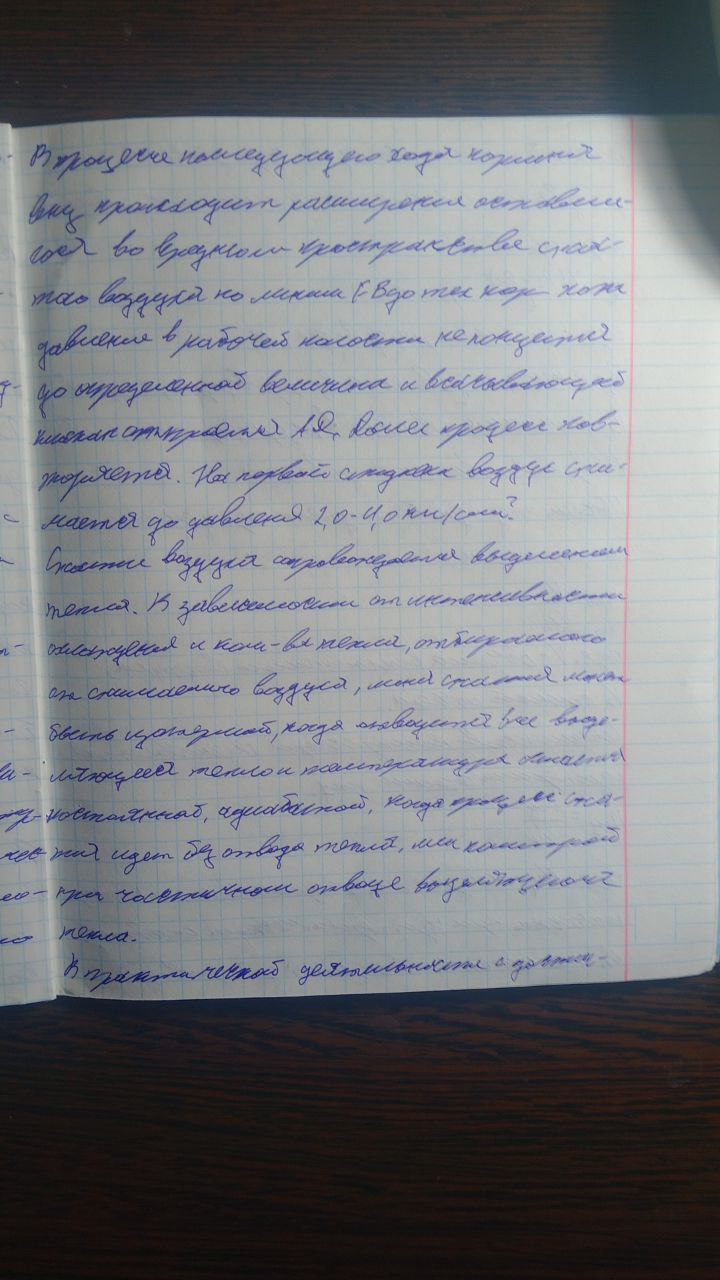 В процессе последующего хода поршня
вниз происходит расширение оставше-
гося во вредном пространстве сжа-
того воздуха по линии до тех пор пока
давление в рабочей полости не понизится
до определенной величина и всасывающий
клапан откроется. Далее процесс пов-
торяется. На первой воздух сжи-
мается до давления 2,0-4,0 кг/см².
Сжатие воздуха сопровождается выделением
тепла. В зависимости от интенсивности
охлаждения и кол-ва тепла, отбираемого
от сжимаемого воздуха, линия сжатия может
быть изотермой, когда отводится все выде-
ляющееся тепло и температура остается
постоянной, адиабатой, когда процесс сжа-
тия идет без отвода тепла, или политропой
при частичном отводе выделяющегося
тепла.
В практической деятельности